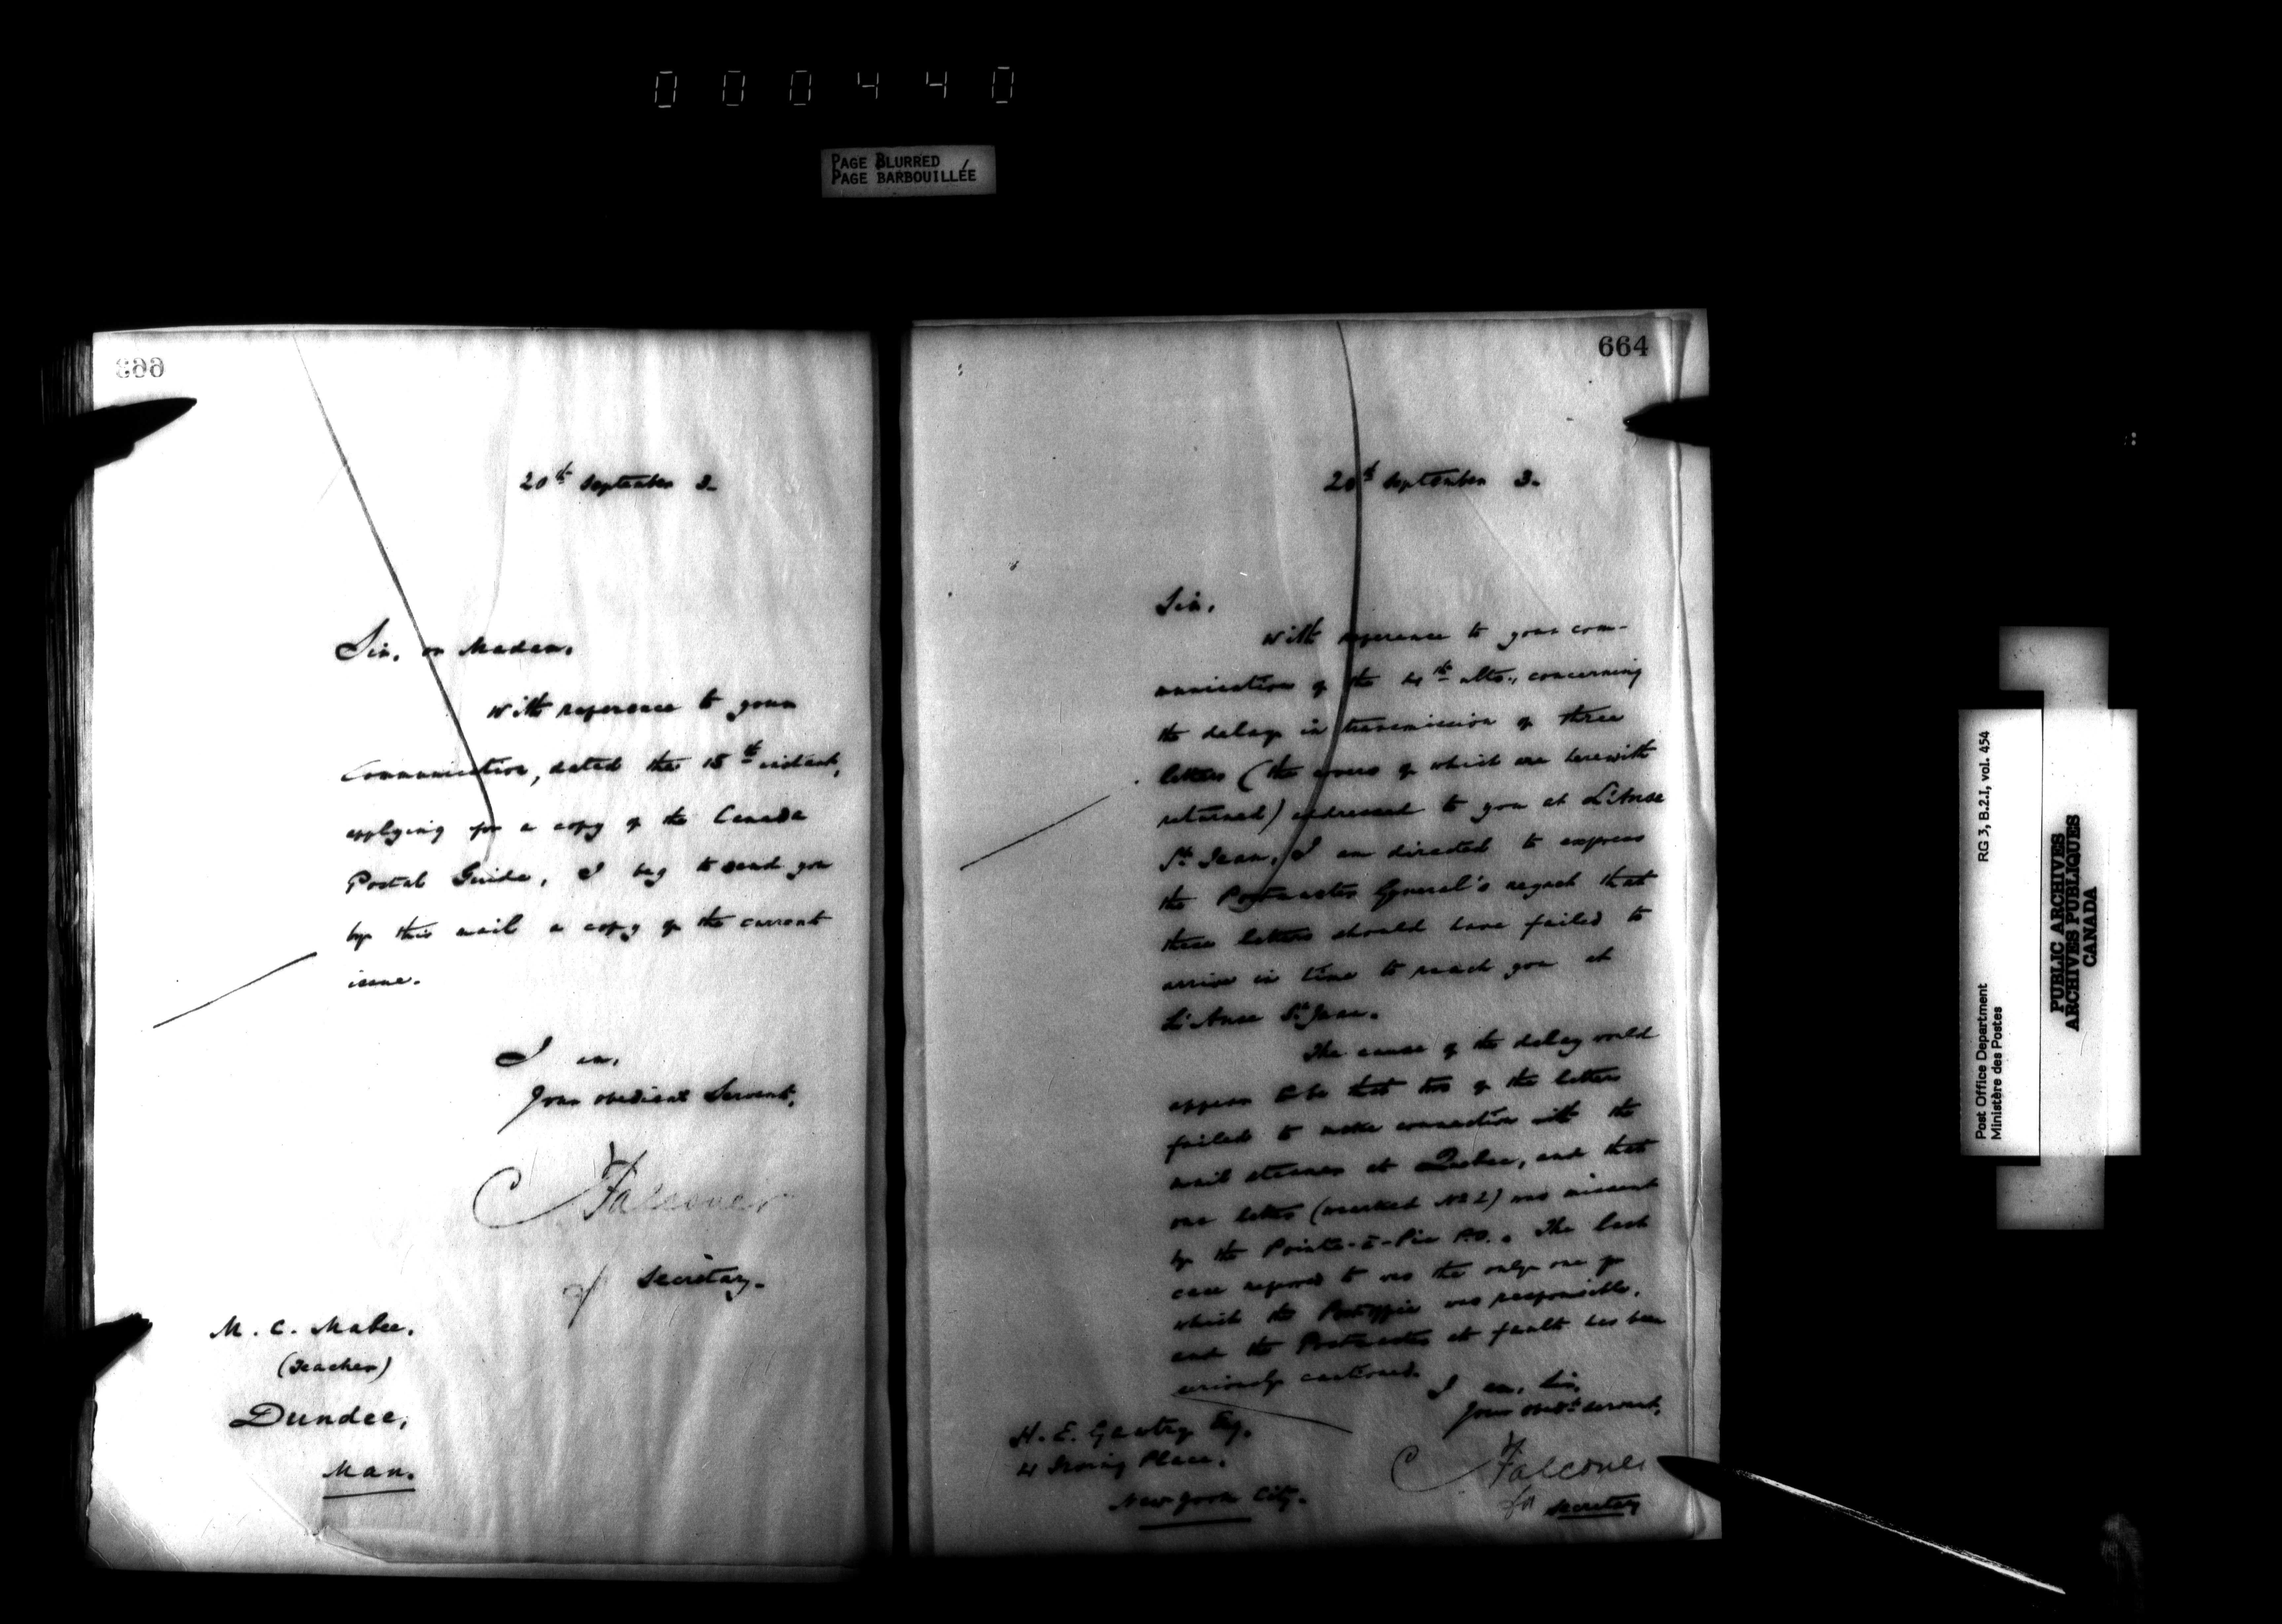 000440
PAGE BLURRED
PAGE BARBOUILLÉE
663
20th September 3.
Sir, or Madam.
With reference to your
Communication, dated the 15th instant,
applying for a copy of the Canada
Postal Guide, I beg to send you
by this mail a copy of the current
issue.
I am,
Your obedient Servant,
C Falconer
for Secretary.
M. C. Mabee,
(Teacher)
Dundee,
Man.
664
20th September 3.
Sir,
With reference to your com-
munication of the 4th ulto., concerning
the delay in transmission of three
letters (the covers of which are herewith
returned) addressed to you at L'Anse
St Jean, I am directed to express
the Postmaster General's regret that
these letters should have failed to
arrive in time to reach you at
L'Anse St Jean.
The cause of the delay would
appear to be that two of the letters
failed to make connection with the
mail steamer at Quebec, and that
one letter (marked No 2) was missent
by the Pointe-à-Pic P.O.. The last
case referred to was the only one for
which the Postoffice was responsible,
and the Postmaster at fault has been
seriously cautioned.
I am, Sir,
Your obedt servant,
C Falconer
for Secretary
H. E. Gawtry Esq.
4 Irving Place,
New York City.
Post Office Department RG 3, B.2.I, vol. 454
Ministère des Postes
PUBLIC ARCHIVES
ARCHIVES PUBLIQUES
CANADA